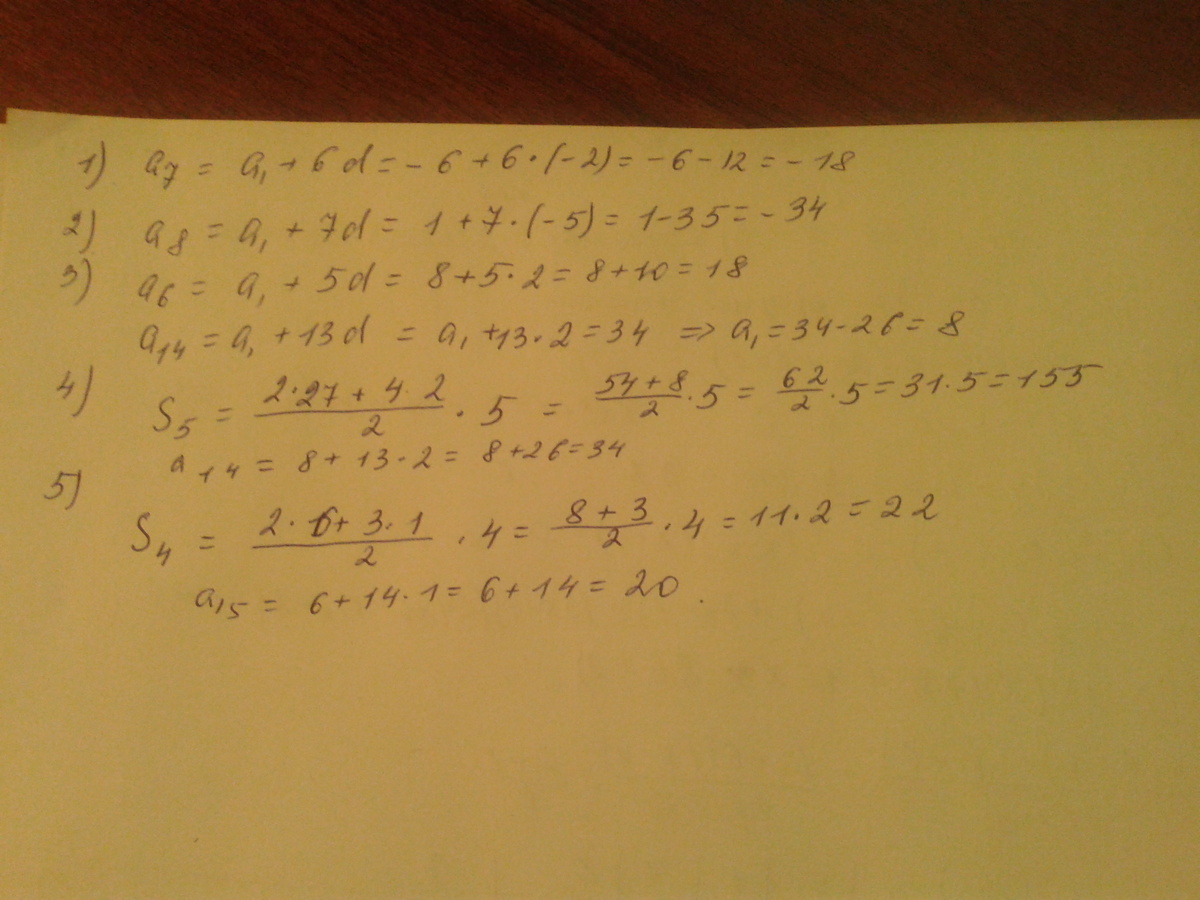 1) a₇ = a₁ + 6d = - 6 + 6·(-2) = -6 - 12 = - 18
2) a₈ = a₁ + 7d = 1 + 7·(-5) = 1-35 = - 34
3) a₆ = a₁ + 5d = 8+5·2 = 8+10 = 18
a₁₄ = a₁ + 13d = a₁ +13·2 = 34 => a₁ = 34-26 = 8
4) S₅ = (2·27 + 4·2)/2 · 5 = (54+8)/2 · 5 = 62/2 · 5 = 31·5 = 155
a₁₄ = 8 + 13·2 = 8+26=34
5) S₄ = (2·6+ 3·1)/2 · 4 = (8 + 3)/2 · 4 = 11·2 = 22
a₁₅ = 6+14·1 = 6+14 = 20.